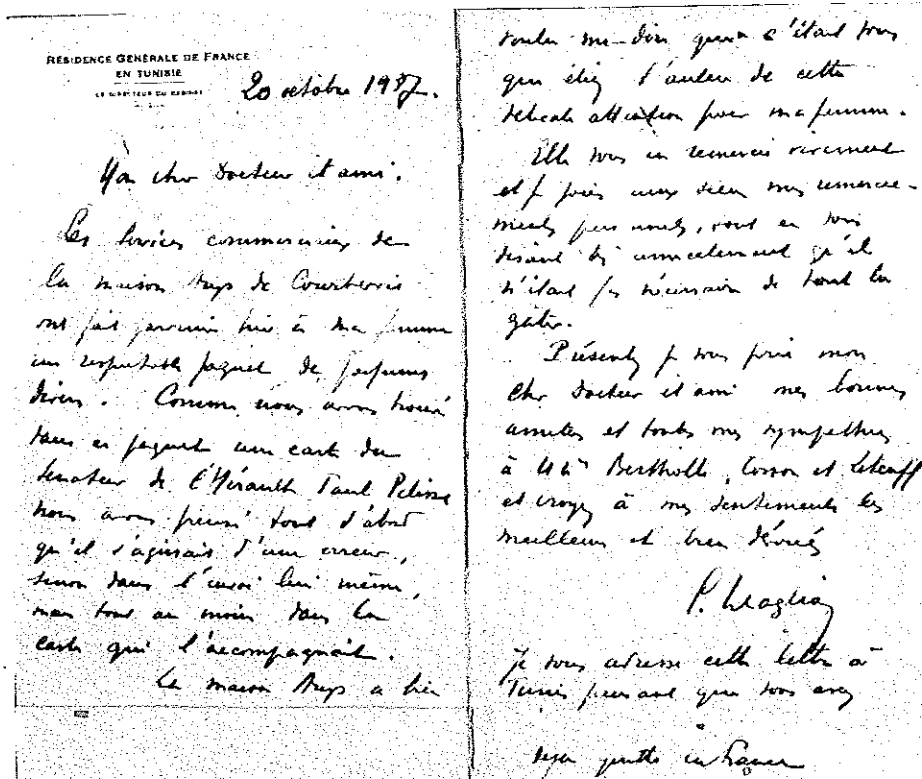 RÉSIDENCE GÉNÉRALE DE FRANCE
EN TUNISIE
LE DIRECTEUR DU CABINET
20 octobre 1937.
Mon cher Docteur et ami.
Les services commerciaux de
la maison de Courbevoie
ont fait parvenir hier à ma femme
un respectable paquet de parfums
divers. Comme nous avons trouvé
dans ce paquet une carte du
Senateur de l'Hérault Paul Pelisse
nous avons pensé tout d'abord
qu'il s'agissait d'une erreur,
sinon dans l'envoi lui même,
mais tout au moins dans la
carte qui l'accompagnait.
La maison a bien
voulu me dire que c'était vous
qui étiez l'auteur de cette
délicate attention pour ma femme.
Elle vous en remercie vivement
et je joins aux siens mes remercie-
ments personnels, tout en vous
disant bien amicalement qu'il
n'était pas nécessaire de tant la
gâter.
Présentez je vous prie mon
cher Docteur et ami mes bonnes
amitiés et toutes mes sympathies
à Bertholle, et
et croyez à mes sentiments les
meilleurs et bien dévoués
P.
Je vous adresse cette lettre à
Tunis pensant que vous avez
déjà quitté la France